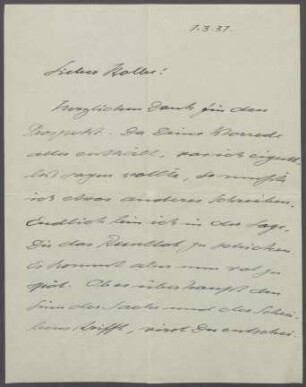 7.3.37.
Lieber Kolbe!
Herzlichen Dank für den
Prospekt. Da Deine Vorrede
alles enthält, was ich eigent-
lich sagen wollte, so mußte
ich etwas anderes schreiben.
Endlich bin ich in der Lage,
Dir das Resultat zu schicken.
Es kommt aber nun wol zu
spät. Ob es überhaupt den
Sinn der Sache und des Schrei-
bens trifft, wirst Du entschei-